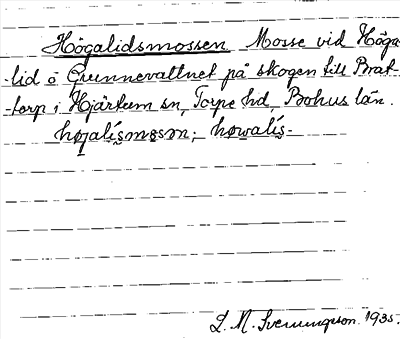 Högalidsmossen Mosse vid Höga-
lid o Grunnevattnet på skogen till Brat-
torp i Hjärtum sn, Torpe hd, Bohus län.
høgalismosən, høwalis-
L. N. Svenungsson. 1935.